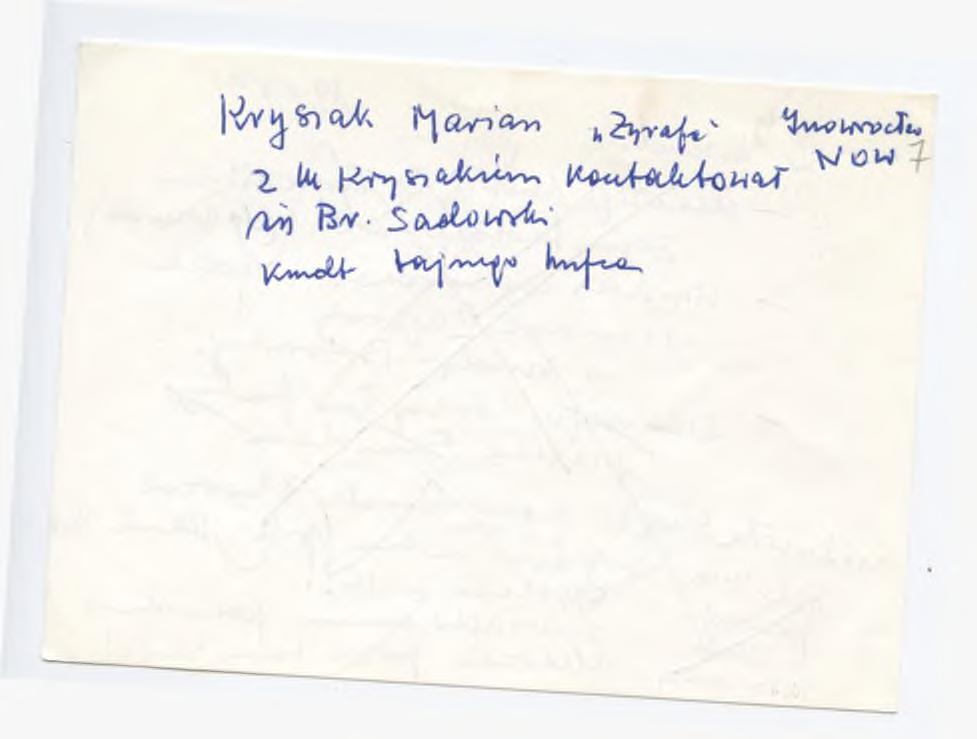 Krysiak Marian „Żyrafa" Inowrocław
NOW 7
z M Krysiakiem kontaktował
się Br. Sadowski
kmdt tajnego hufca